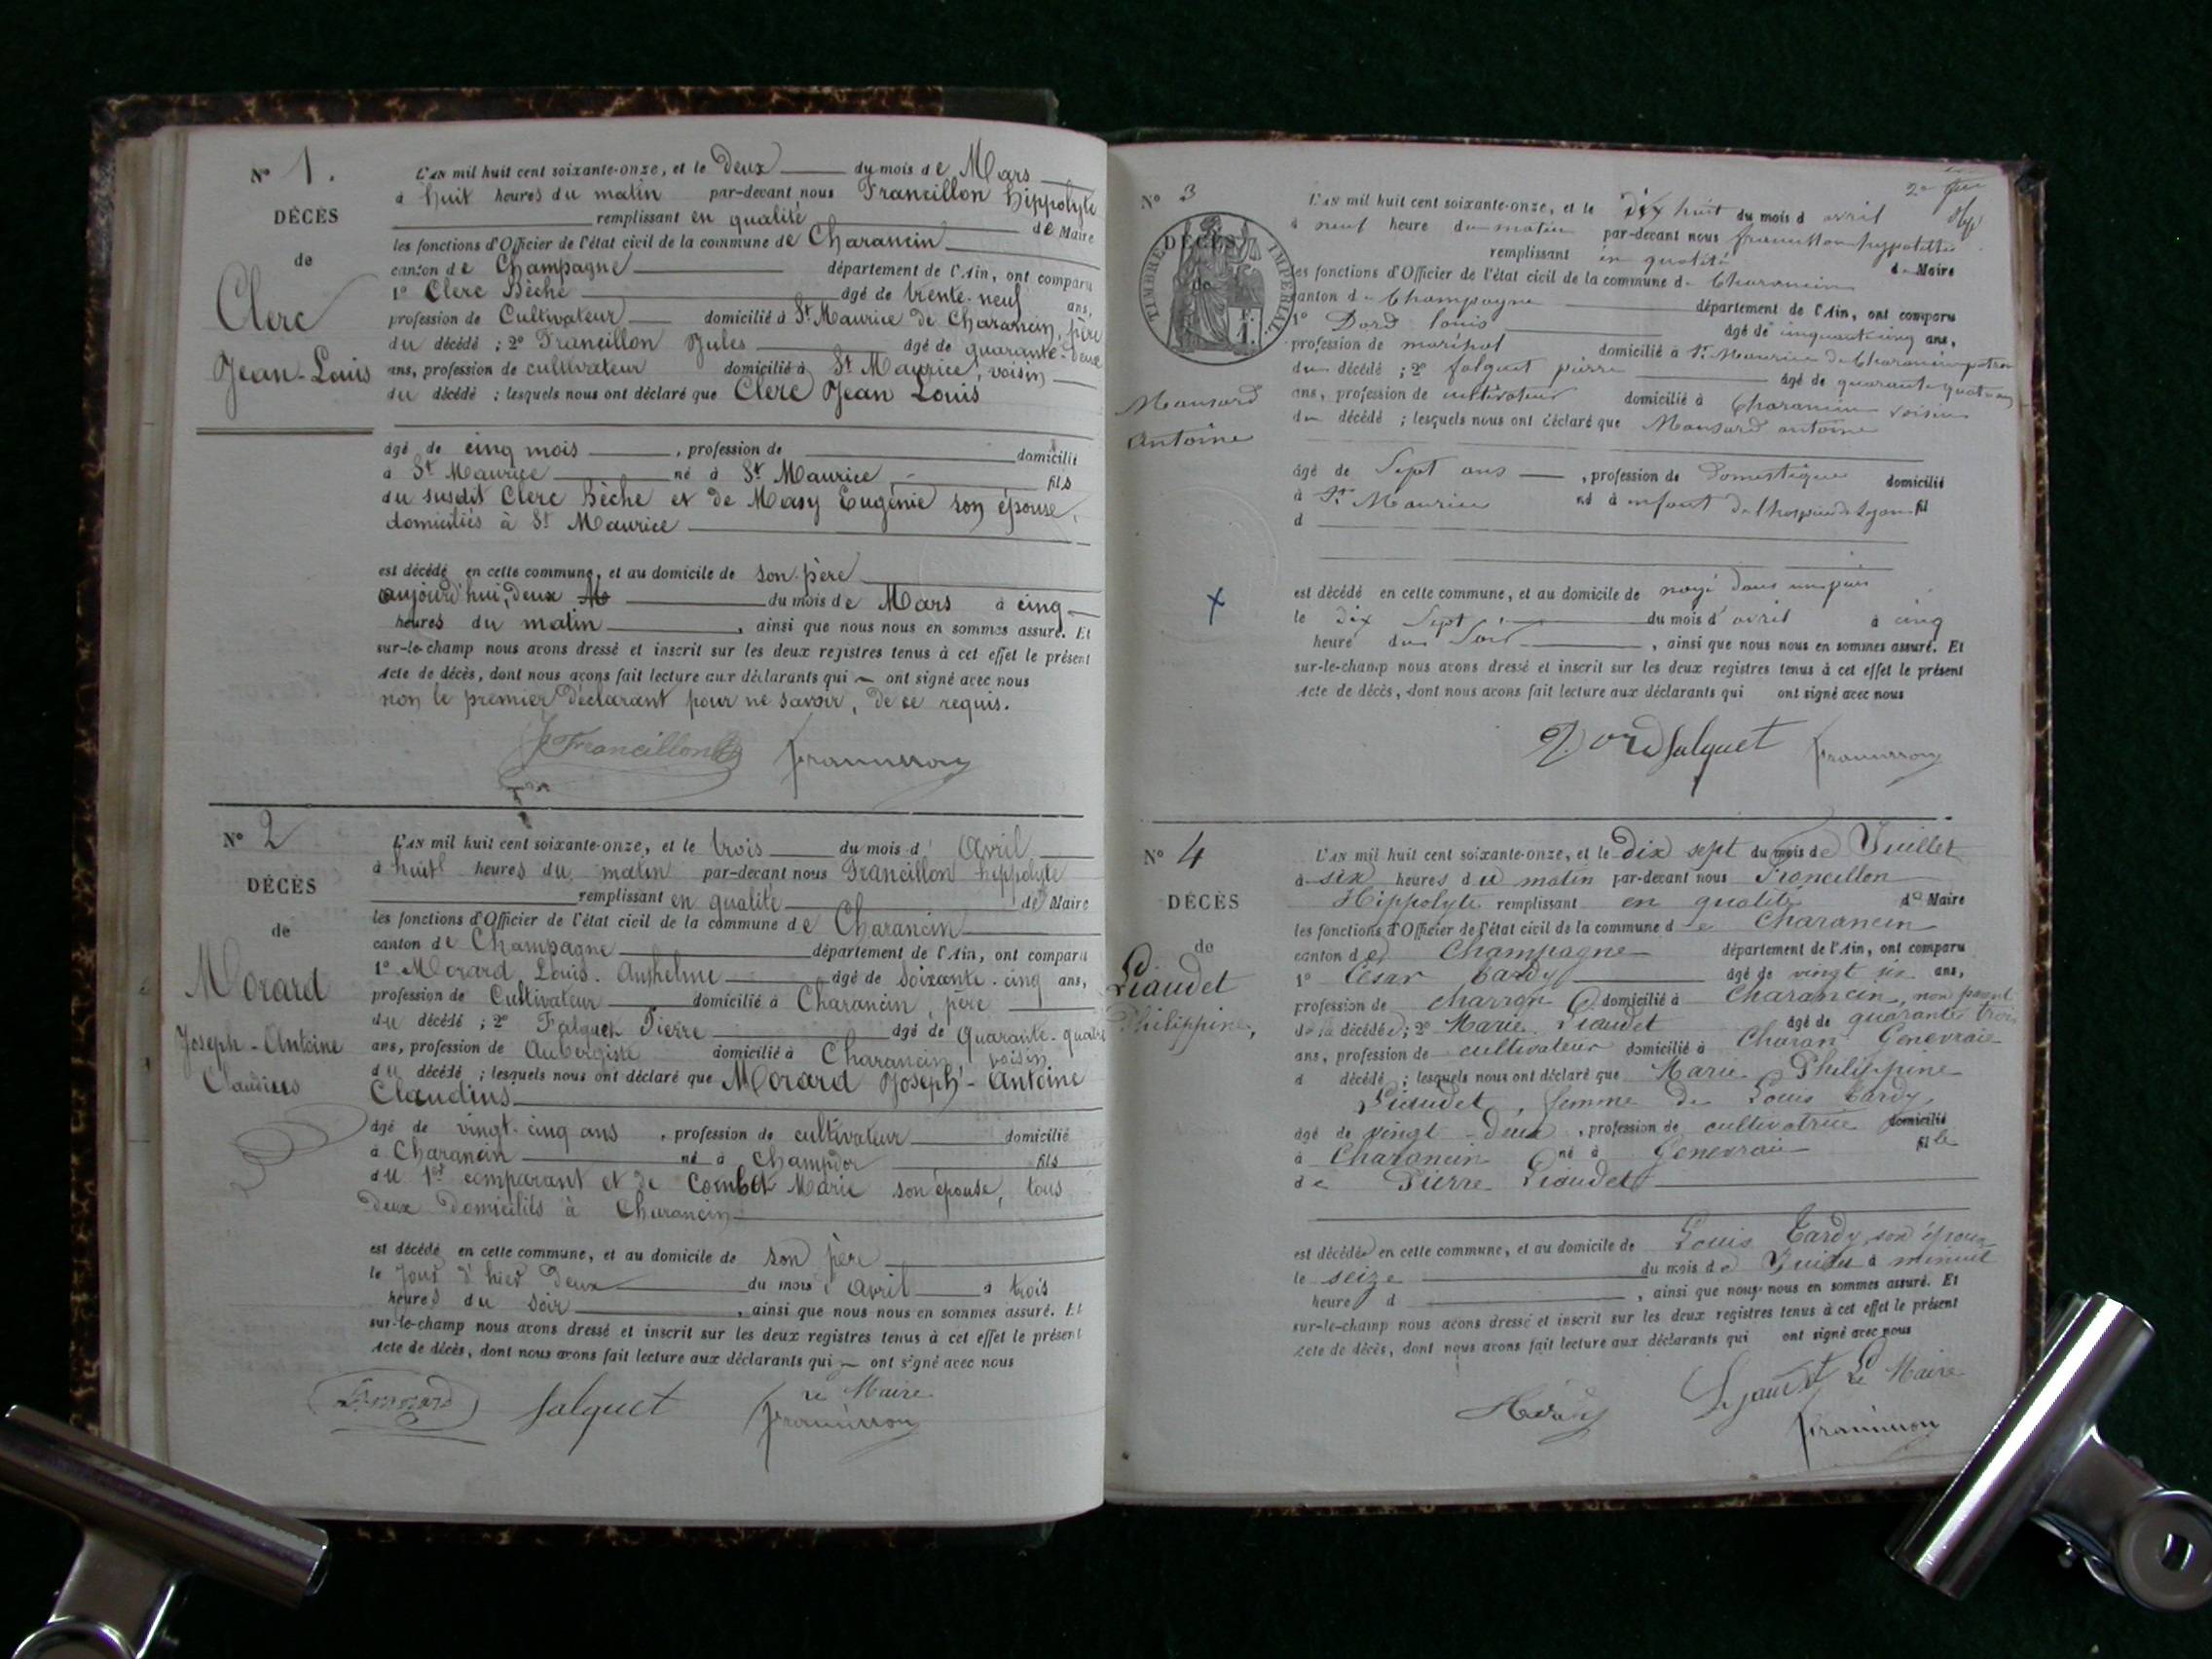 N° 1.
DÉCÈS
de
Clerc
Jean-Louis
L'AN mil huit cent soixante-onze, et le deux du mois de Mars
à huit heures du matin par-devant nous Francillon hippolyte
remplissant en qualité de Maire
les fonctions d'Officier de l'état civil de la commune de Charancin
canton de Champagne département de l'Ain, ont comparu
1° Clerc Bèche âgé de trente-neuf ans,
profession de Cultivateur domicilié à St Maurice de Charancin, père
du décédé ; 2° Francillon Jules âgé de quarante-deux
ans, profession de cultivateur domicilié à St Maurice, voisin
du décédé ; lesquels nous ont déclaré que Clerc Jean Louis
âgé de cinq mois, profession de domicilié
à St Maurice né à St Maurice fils
du susdit Clerc Bèche et de Masy Eugénie son épouse,
domiciliés à St Maurice
est décédé en cette commune, et au domicile de son père
aujourd'hui, deux du mois de Mars à cinq
heures du matin, ainsi que nous nous en sommes assuré. Et
sur-le-champ nous avons dressé et inscrit sur les deux registres tenus à cet effet le présent
Acte de décès, dont nous avons fait lecture aux déclarants qui ont signé avec nous
non le premier déclarant pour ne savoir, de ce requis.
J Francillon francillon
N° 2
DÉCÈS
de
Morard
Joseph-Antoine
Claudius
L'AN mil huit cent soixante-onze, et le trois du mois d'Avril
à huit heures du matin par-devant nous Francillon hippolyte
remplissant en qualité de Maire
les fonctions d'Officier de l'état civil de la commune de Charancin
canton de Champagne département de l'Ain, ont comparu
1° Morard Louis Anthelme âgé de soixante-cinq ans,
profession de Cultivateur domicilié à Charancin, père
du décédé ; 2° Falquet Pierre âgé de Quarante-quatre
ans, profession de Aubergiste domicilié à Charancin, voisin
du décédé ; lesquels nous ont déclaré que Morard Joseph-Antoine
Claudius
âgé de vingt-cinq ans, profession de cultivateur domicilié
à Charancin né à Champdor fils
du 1er comparant et de Combet Marie son épouse, tous
deux domiciliés à Charancin
est décédé en cette commune, et au domicile de son père
le jour d'hier deux du mois d'avril à trois
heures du soir, ainsi que nous nous en sommes assuré. Et
sur-le-champ nous avons dressé et inscrit sur les deux registres tenus à cet effet le présent
Acte de décès, dont nous avons fait lecture aux déclarants qui ont signé avec nous
le Maire
Morard falquet francillon
N° 3
DÉCÈS
de
TIMBRE IMPÉRIAL
Mansard
Antoine
L'AN mil huit cent soixante-onze, et le dix huit du mois d avril
à neuf heure du matin par-devant nous francillon hyppolitte
remplissant en qualité de Maire
les fonctions d'Officier de l'état civil de la commune de Charancin
canton de Champagne département de l'Ain, ont comparu
1° Dord louis âgé de cinquante cinq ans,
profession de domicilié à St Maurice de Charancin patron
du décédé ; 2° falquet pierre âgé de quarante quatre
ans, profession de cultivateur domicilié à Charancin voisin
du décédé ; lesquels nous ont déclaré que Mansard antoine
âgé de Sept ans, profession de Domestique domicilié
à St Maurice né à enfant de lhospice de Lyon fil
d
est décédé en cette commune, et au domicile de noyé dans un puis
le dix Sept du mois d'avril à cinq
heure du Soir, ainsi que nous nous en sommes assuré. Et
sur-le-champ nous avons dressé et inscrit sur les deux registres tenus à cet effet le présent
Acte de décès, dont nous avons fait lecture aux déclarants qui ont signé avec nous
Dord falquet francillon
N° 4
DÉCÈS
de
Liaudet
Philippine,
L'AN mil huit cent soixante-onze, et le dix sept du mois de Juillet
à six heures du matin par-devant nous Francillon
Hippolyte remplissant en qualité de Maire
les fonctions d'Officier de l'état civil de la commune de Charancin
canton de Champagne département de l'Ain, ont comparu
1° César Tardy âgé de vingt six ans,
profession de charron domicilié à Charancin, non parent
de la décédée ; 2° Marie Liaudet âgé de quarante trois
ans, profession de cultivateur domicilié à Charan Genevrais
d décédé ; lesquels nous ont déclaré que Marie Philippine
Liaudet, femme de Louis Tardy,
âgé de vingt-deux, profession de cultivatrice domicilié
à Charancin né à Genevrais fille
de Pierre Liaudet
est décédée en cette commune, et au domicile de Louis Tardy, son époux
le seize du mois de Juillet à minuit
heure d, ainsi que nous nous en sommes assuré. Et
sur-le-champ nous avons dressé et inscrit sur les deux registres tenus à cet effet le présent
Acte de décès, dont nous avons fait lecture aux déclarants qui ont signé avec nous
Le Maire
francillon